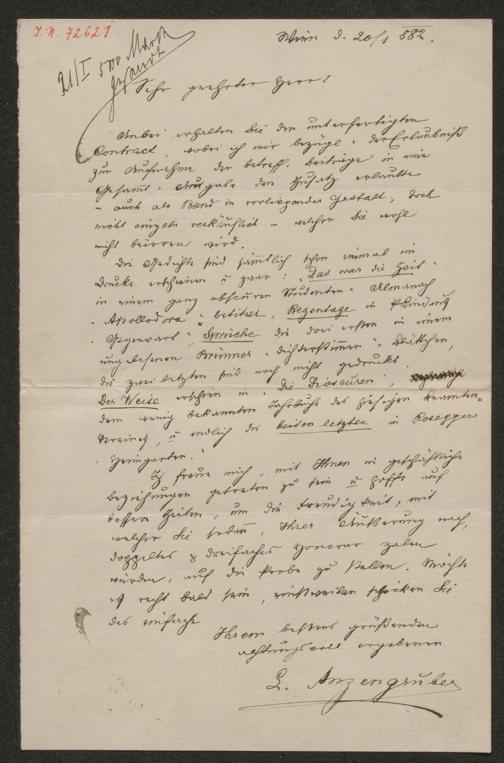 I.N. 72621
21/I 500 Mark
gesandt
Wien d. 20/1 882.
Sehr geehrter Herr!
Anbei erhalten Sie den unterfertigten
Contract, wobei ich mir bezügl. der Erlaubniß
zur Aufnahme der betreff. Beiträge in eine
Gesamt-Ausgabe den Zusatz erlaubte
- auch als Band in vorliegender Gestalt, doch
nicht einzeln verkäuflich - welcher Sie wohl
nicht beirren wird.
Die Gedichte sind sämmtlich schon einmal im
Drucke erschienen u zwar: "Das war die Zeit"
in einem ganz obscuren Studenten-Almanach
"Apollodora" betitelt, Regentage in
Gegenwart", Sprüche die drei ersten in einem
ungelesenen Brünner "Dichterstimmen" Blättchen,
die zwei letzten sind noch nicht gedruckt
Der Weise erschien in "Die Dioscuren",
dem wenig bekannten Jahrbuch des hiesigen Beamten-
Vereines, u endlich die beiden letzten in Roseggers
"Heimgarten."
Ich freue mich, mit Ihnen in geschäftliche
Beziehungen getreten zu sein u hoffe auf
bessere Zeiten, um die Freudigkeit, mit
welcher Sie sodann, Ihrer Äußerung nach,
doppeltes & dreifaches Honorar zalen
würden, auf die Probe zu stellen. Möchte
es recht bald sein, einstweilen schicken Sie
das einfache
Ihrem bestens grüßenden
achtungsvoll ergebenen
L. Anzengruber